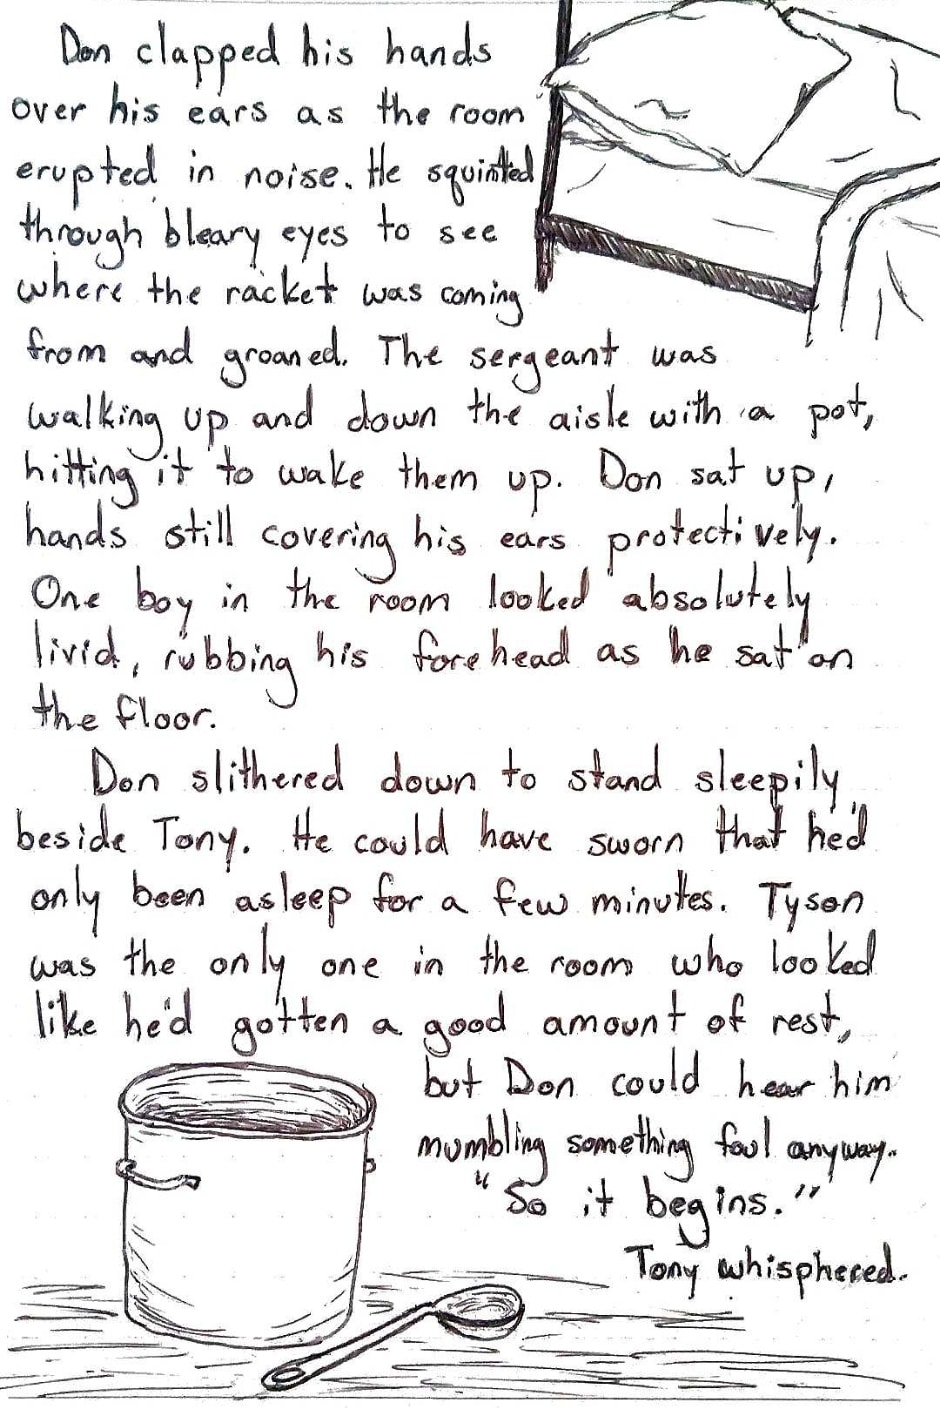 Don clapped his hands
over his ears as the room
erupted in noise. He squinted
through bleary eyes to see
where the racket was coming
from and groaned. The sergeant was
walking up and down the aisle with a pot,
hitting it to wake them up. Don sat up,
hands still covering his ears protectively.
One boy in the room looked absolutely
livid, rubbing his forehead as he sat on
the floor.
Don slithered down to stand sleepily
beside Tony. He could have sworn that he'd
only been asleep for a few minutes. Tyson
was the only one in the room who looked
like he'd gotten a good amount of rest,
but Don could hear him
mumbling something foul anyway.
"So it begins."
Tony whisphered.